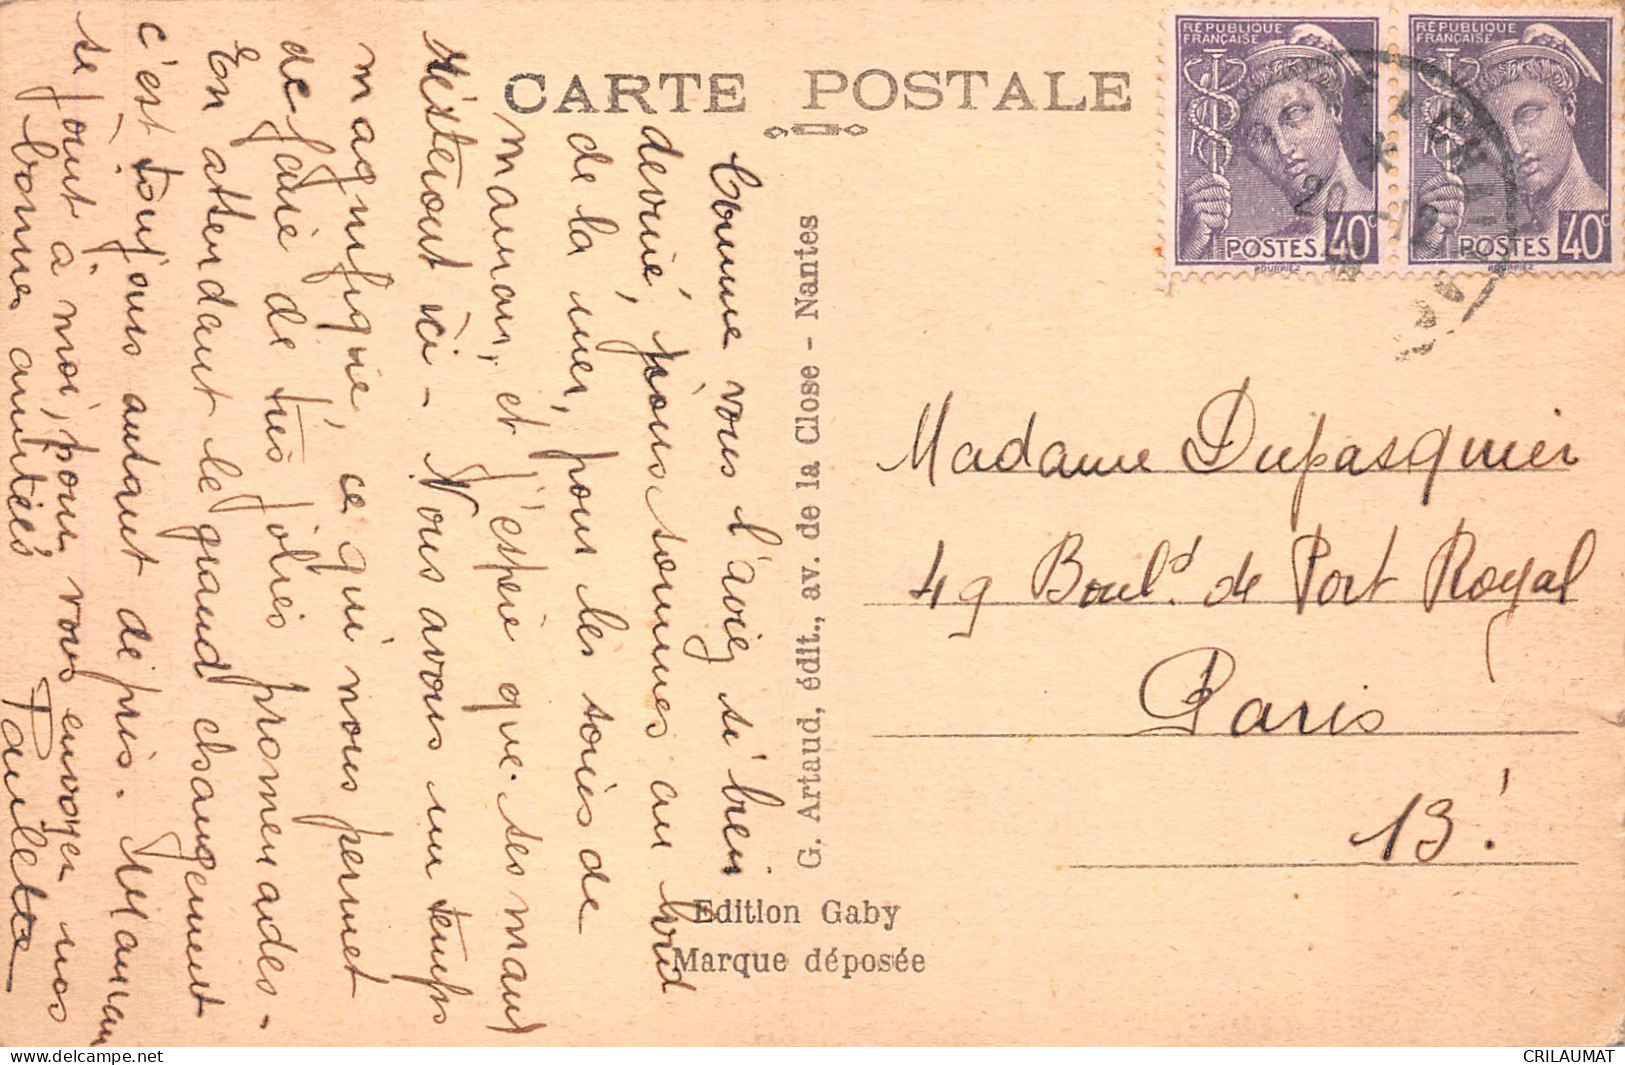 CARTE POSTALE
RÉPUBLIQUE
FRANÇAISE
POSTES 40c
RÉPUBLIQUE
FRANÇAISE
POSTES 40c
Comme vous l'aviez si bien
deviné, nous sommes au bord
de la mer, pour les soins de
maman, et j'espère que ses maux
resteront ici - Nous avons un temps
magnifique, ce qui nous permet
de faire de très jolies promenades.
En attendant le grand changement
c'est toujours autant de pris. Maman
se joint à moi, pour vous envoyer nos
bonnes amitiés
Paulette
G. Artaud, édit., av. de la Close - Nantes
Edition Gaby
Marque déposée
Madame Dupasquier
49 Boul.d de Port Royal
Paris
13!
CRILAUMAT